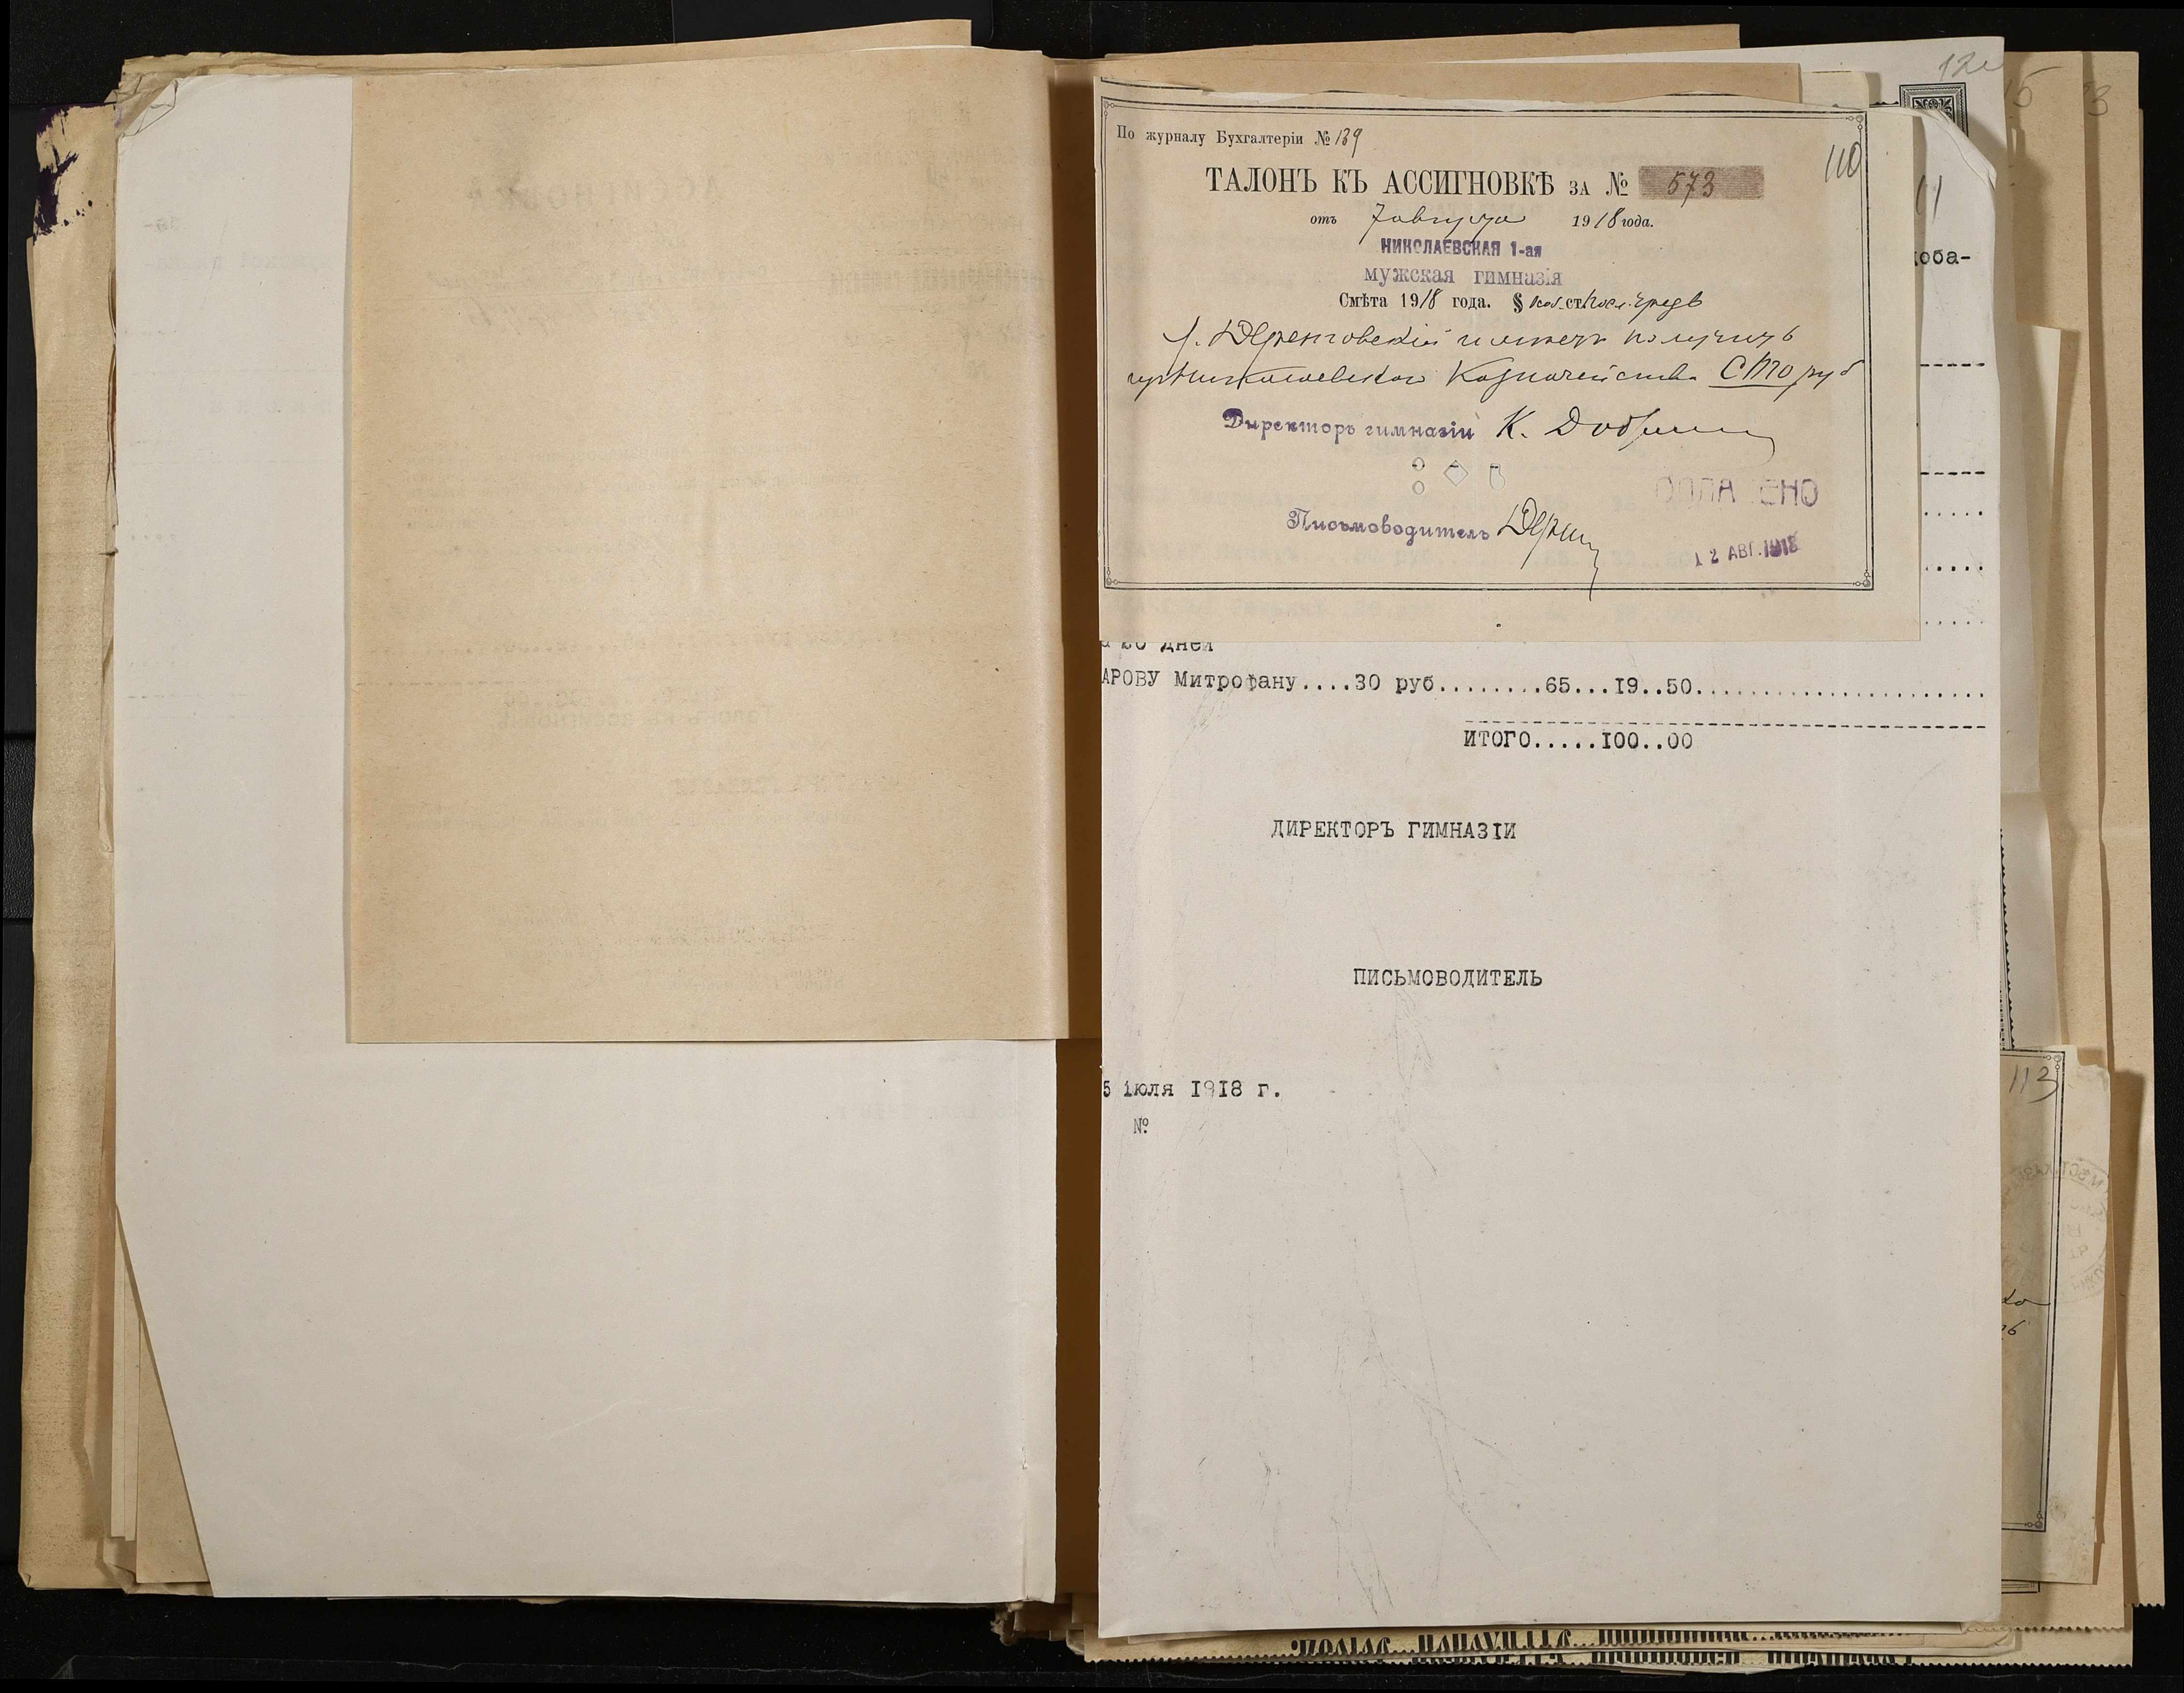 По журналу Бухгалтеріи № 139
110
ТАЛОНЪ КЪ АССИГНОВКѢ ЗА № 573
отъ 7 августа 1918 года.
НИКОЛАЕВСКАЯ 1-ая
мужская гимназія
Смѣта 1918 года. § ст.
г. имѣетъ получить
изъ Николаевскаго Казначейства Сто руб
Директоръ гимназіи К.
ОПЛА ЕНО
Письмоводитель
12 АВГ. 1918
20 дней
АРОВУ Митрофану....30 руб........65...19..50......................
ИТОГО.....100..00
ДИРЕКТОРЪ ГИМНАЗІИ
ПИСЬМОВОДИТЕЛЬ
5 іюля 1918 г.
№
коба-
113